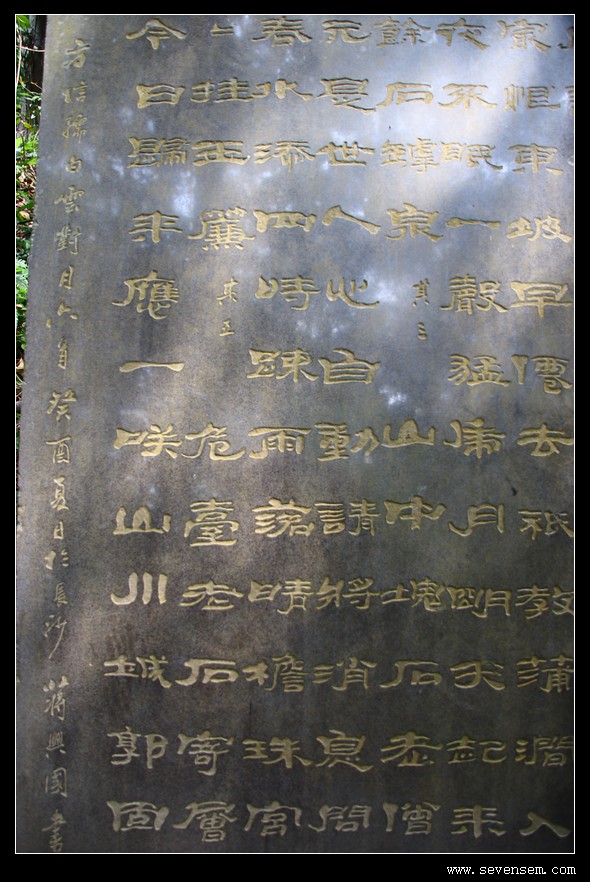 恨東坡早僊去祇教蒲澗入
夜來眠一聲猛虎月明犬起來
餘石罅泉 其三 山中塊石老僧
元是世人心自動請將消息問
春水添四時踈雨落晴檐珠宮
上挂玉簾 其五 危臺老石寄層
今日歸非應一咲山川城郭固
方信孺白雲對月六首 癸酉夏日於長沙 蔣興國書
www.sevensem.com